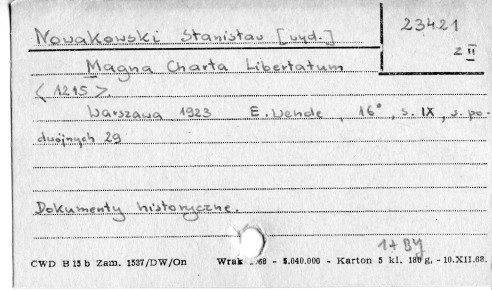 Nowakowski Stanisław [wyd.]
23421
z II
Magna Charta Libertatum
<1215>
Warszawa 1923 E. Wende, 16°, s. IX, s. po-
dwójnych 29
Dokumenty historyczne.
1+BJ
CWD B 15 b Zam. 1537/DW/On Wrak 68 - 5.040.000 - Karton 5 kl. 180 g, - 10.XII.68.